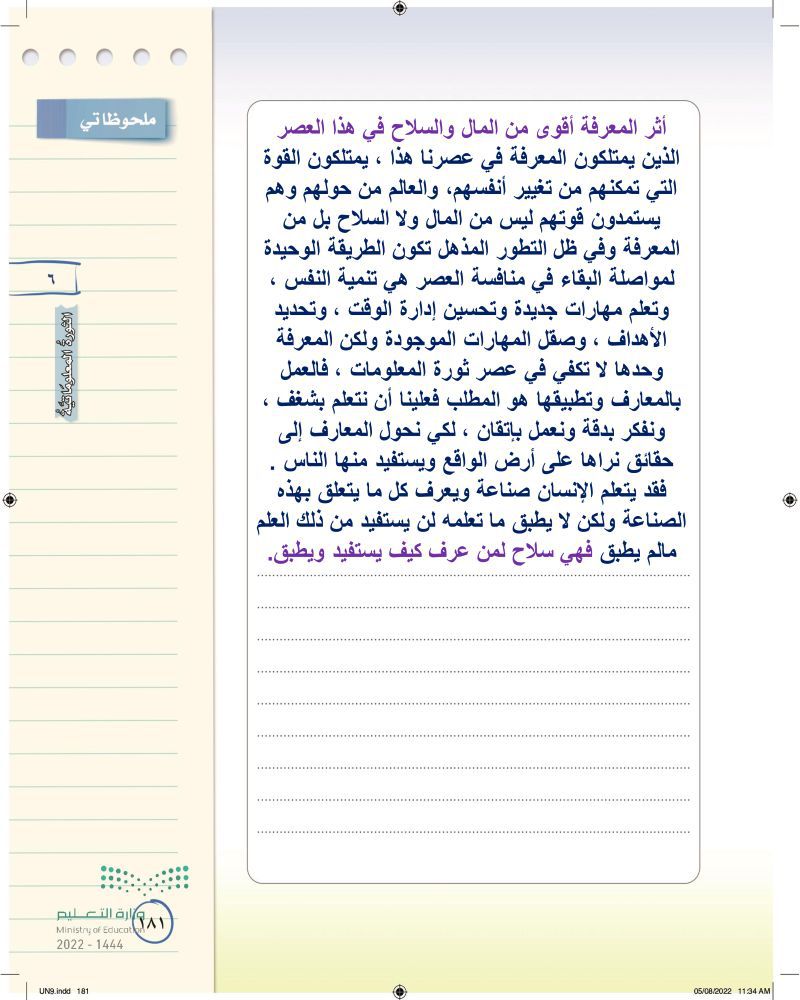 ملحوظاتي
أثر المعرفة أقوى من المال والسلاح في هذا العصر
الذين يمتلكون المعرفة في عصرنا هذا ، يمتلكون القوة
التي تمكنهم من تغيير أنفسهم، والعالم من حولهم وهم
يستمدون قوتهم ليس من المال ولا السلاح بل من
المعرفة وفي ظل التطور المذهل تكون الطريقة الوحيدة
لمواصلة البقاء في منافسة العصر هي تنمية النفس ،
وتعلم مهارات جديدة وتحسين إدارة الوقت ، وتحديد
الأهداف ، وصقل المهارات الموجودة ولكن المعرفة
وحدها لا تكفي في عصر ثورة المعلومات ، فالعمل
بالمعارف وتطبيقها هو المطلب فعلينا أن نتعلم بشغف ،
ونفكر بدقة ونعمل بإتقان ، لكي نحول المعارف إلى
حقائق نراها على أرض الواقع ويستفيد منها الناس .
فقد يتعلم الإنسان صناعة ويعرف كل ما يتعلق بهذه
الصناعة ولكن لا يطبق ما تعلمه لن يستفيد من ذلك العلم
مالم يطبق فهي سلاح لمن عرف كيف يستفيد ويطبق.
٦
الثورةُ المعلوماتيَّةُ
وزارة التعليم
Ministry of Education
2022 - 1444
١٨١
UN9.indd 181
05/08/2022 11:34 AM